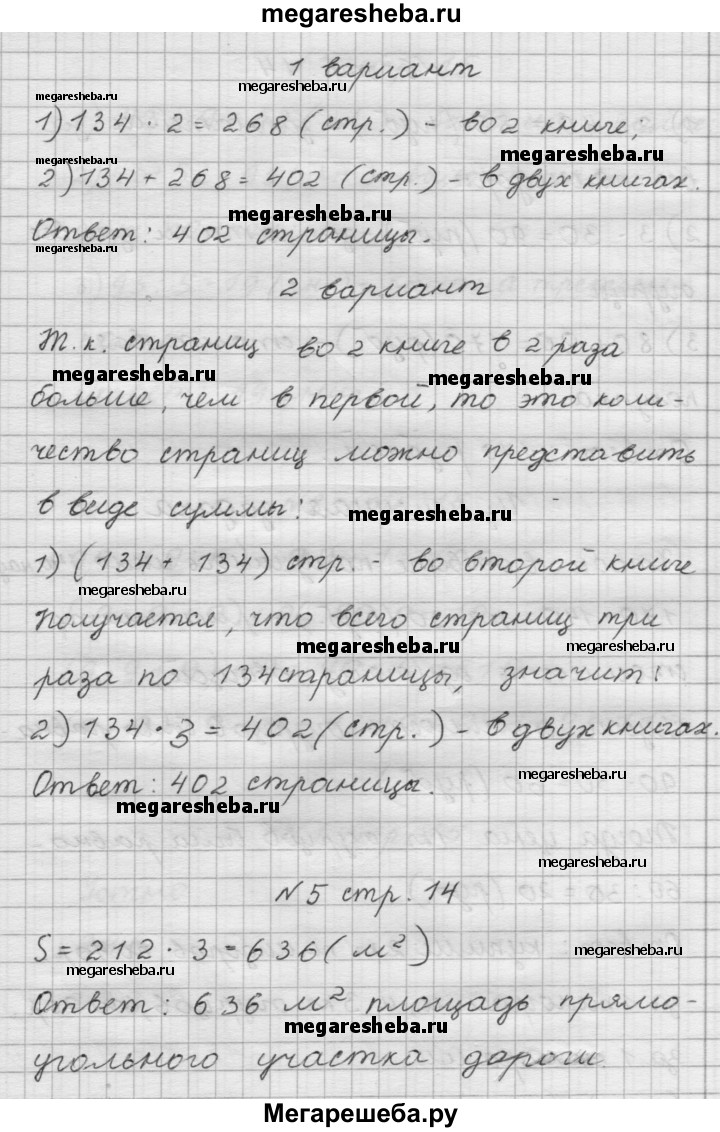 megaresheba.ru
1 вариант
megaresheba.ru
megaresheba.ru
1) 134 · 2 = 268 (стр.) - во 2 книге;
megaresheba.ru
megaresheba.ru
2) 134 + 268 = 402 (стр.) - в двух книгах.
megaresheba.ru
Ответ: 402 страницы.
megaresheba.ru
2 вариант
Т.к. страниц во 2 книге в 2 раза
megaresheba.ru
megaresheba.ru
больше, чем в первой, то это коли-
чество страниц можно представить
в виде суммы:
megaresheba.ru
1) (134 + 134) стр. - во второй книге
megaresheba.ru
Получается, что всего страниц три
megaresheba.ru
megaresheba.ru
раза по 134 стараницы, значит:
2) 134 · 3 = 402 (стр.) - в двух книгах.
megaresheba.ru
Ответ: 402 страницы.
megaresheba.ru
megaresheba.ru
N 5 стр. 14
S = 212 · 3 = 636 (м²)
megaresheba.ru
megaresheba.ru
Ответ: 636 м² площадь прямо-
megaresheba.ru
угольного участка дороги.
Мегарешеба.ру